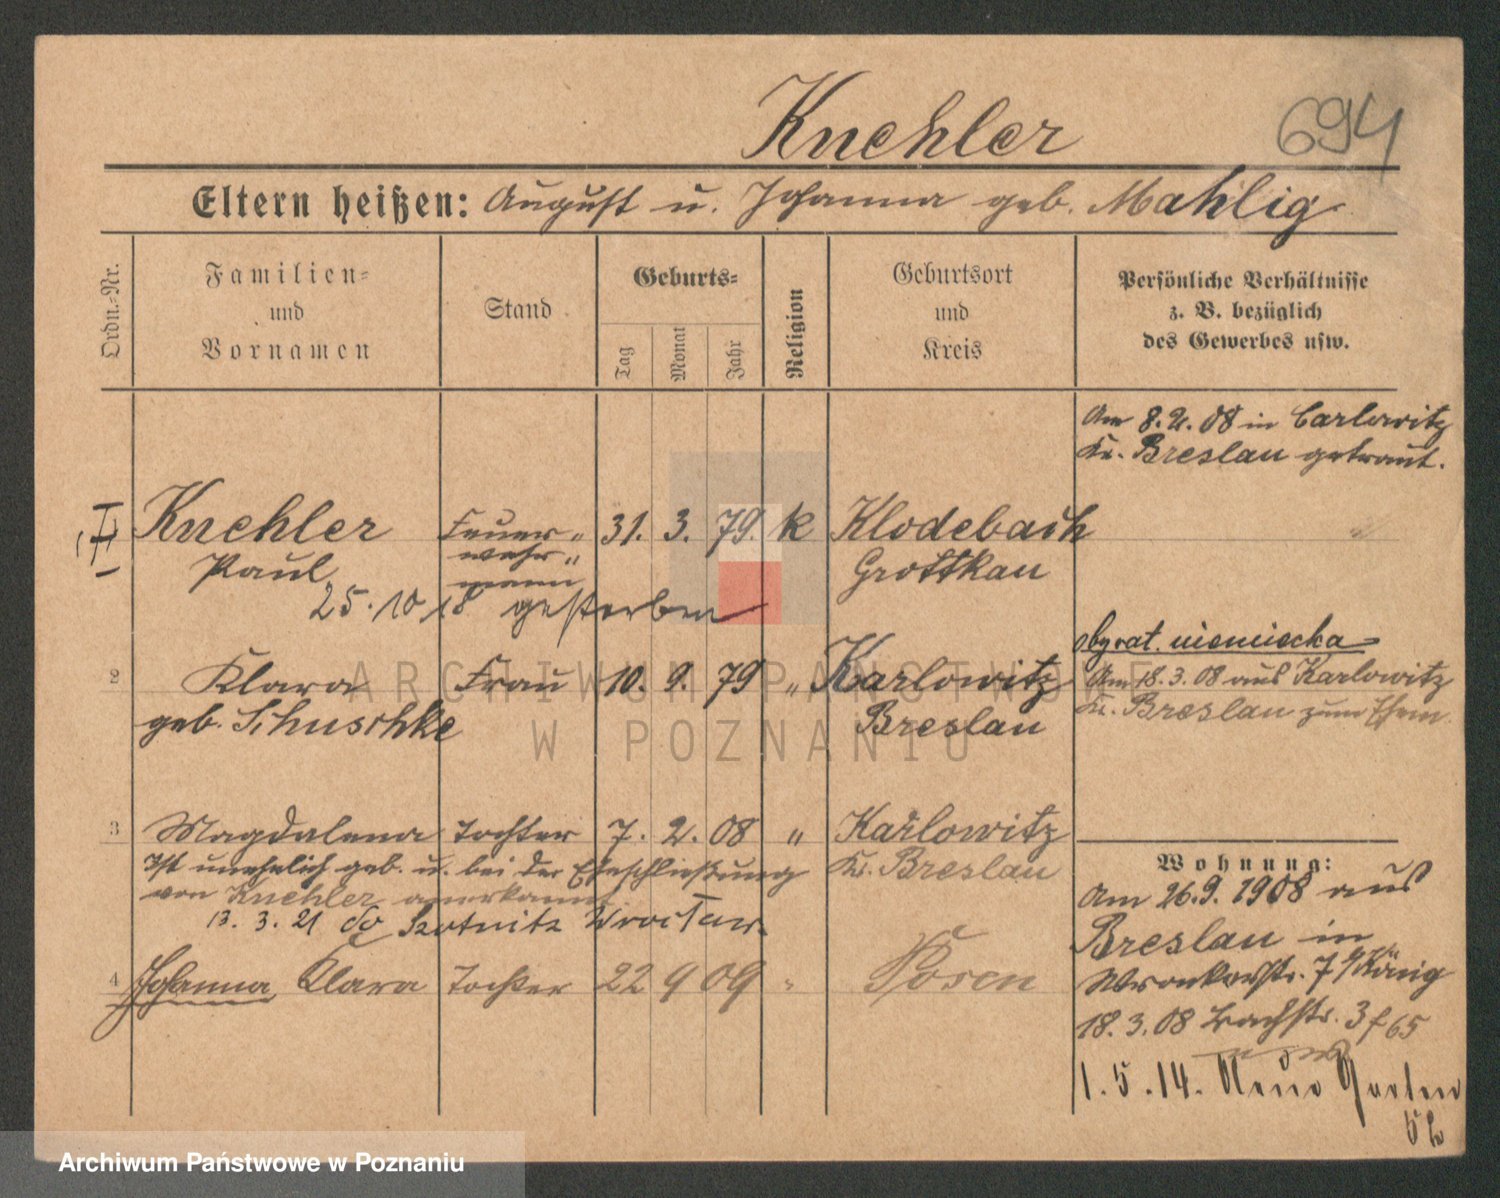 Knehler
694
Eltern heißen: August u. Johanna geb. Mahlig
Ordn.=Nr.
Familien=
und
Vornamen
Stand
Geburts=
Tag
Monat
Jahr
Religion
Geburtsort
und
Kreis
Persönliche Verhältnisse
z. B. bezüglich
des Gewerbes usw.
Am 8.2.08 in Carlowitz
Kr. Breslau getraut.
Knehler Feuer„ 31. 3. 79. k Klodebach
Paul wehr„ Grottkau
mann
25.10 18 gestorben
obywat. niemiecka
2 Klara Frau 10. 9. 79 „ Karlowitz
geb. Schuschke Breslau
Am 18.3.08 aus Karlowitz
Kr. Breslau zum Ehem.
3 Magdalena Tochter 7. 2. 08 „ Karlowitz
Ist unehelich geb. u. bei der Eheschließung Kr. Breslau
von Knehler anerkannt
13. 3. 21 do Szotnitz Wrocław
4 Johanna Klara Tochter 22 9 09 „ Posen
Wohnung:
Am 26.9.1908 aus
Breslau in
Wronkerstr. 7 b/König
18.3.08 Bachstr. 3 f 65
1.5.14. Neue Garten
52
ARCHIWUM PAŃSTWOWE
W POZNANIU
Archiwum Państwowe w Poznaniu